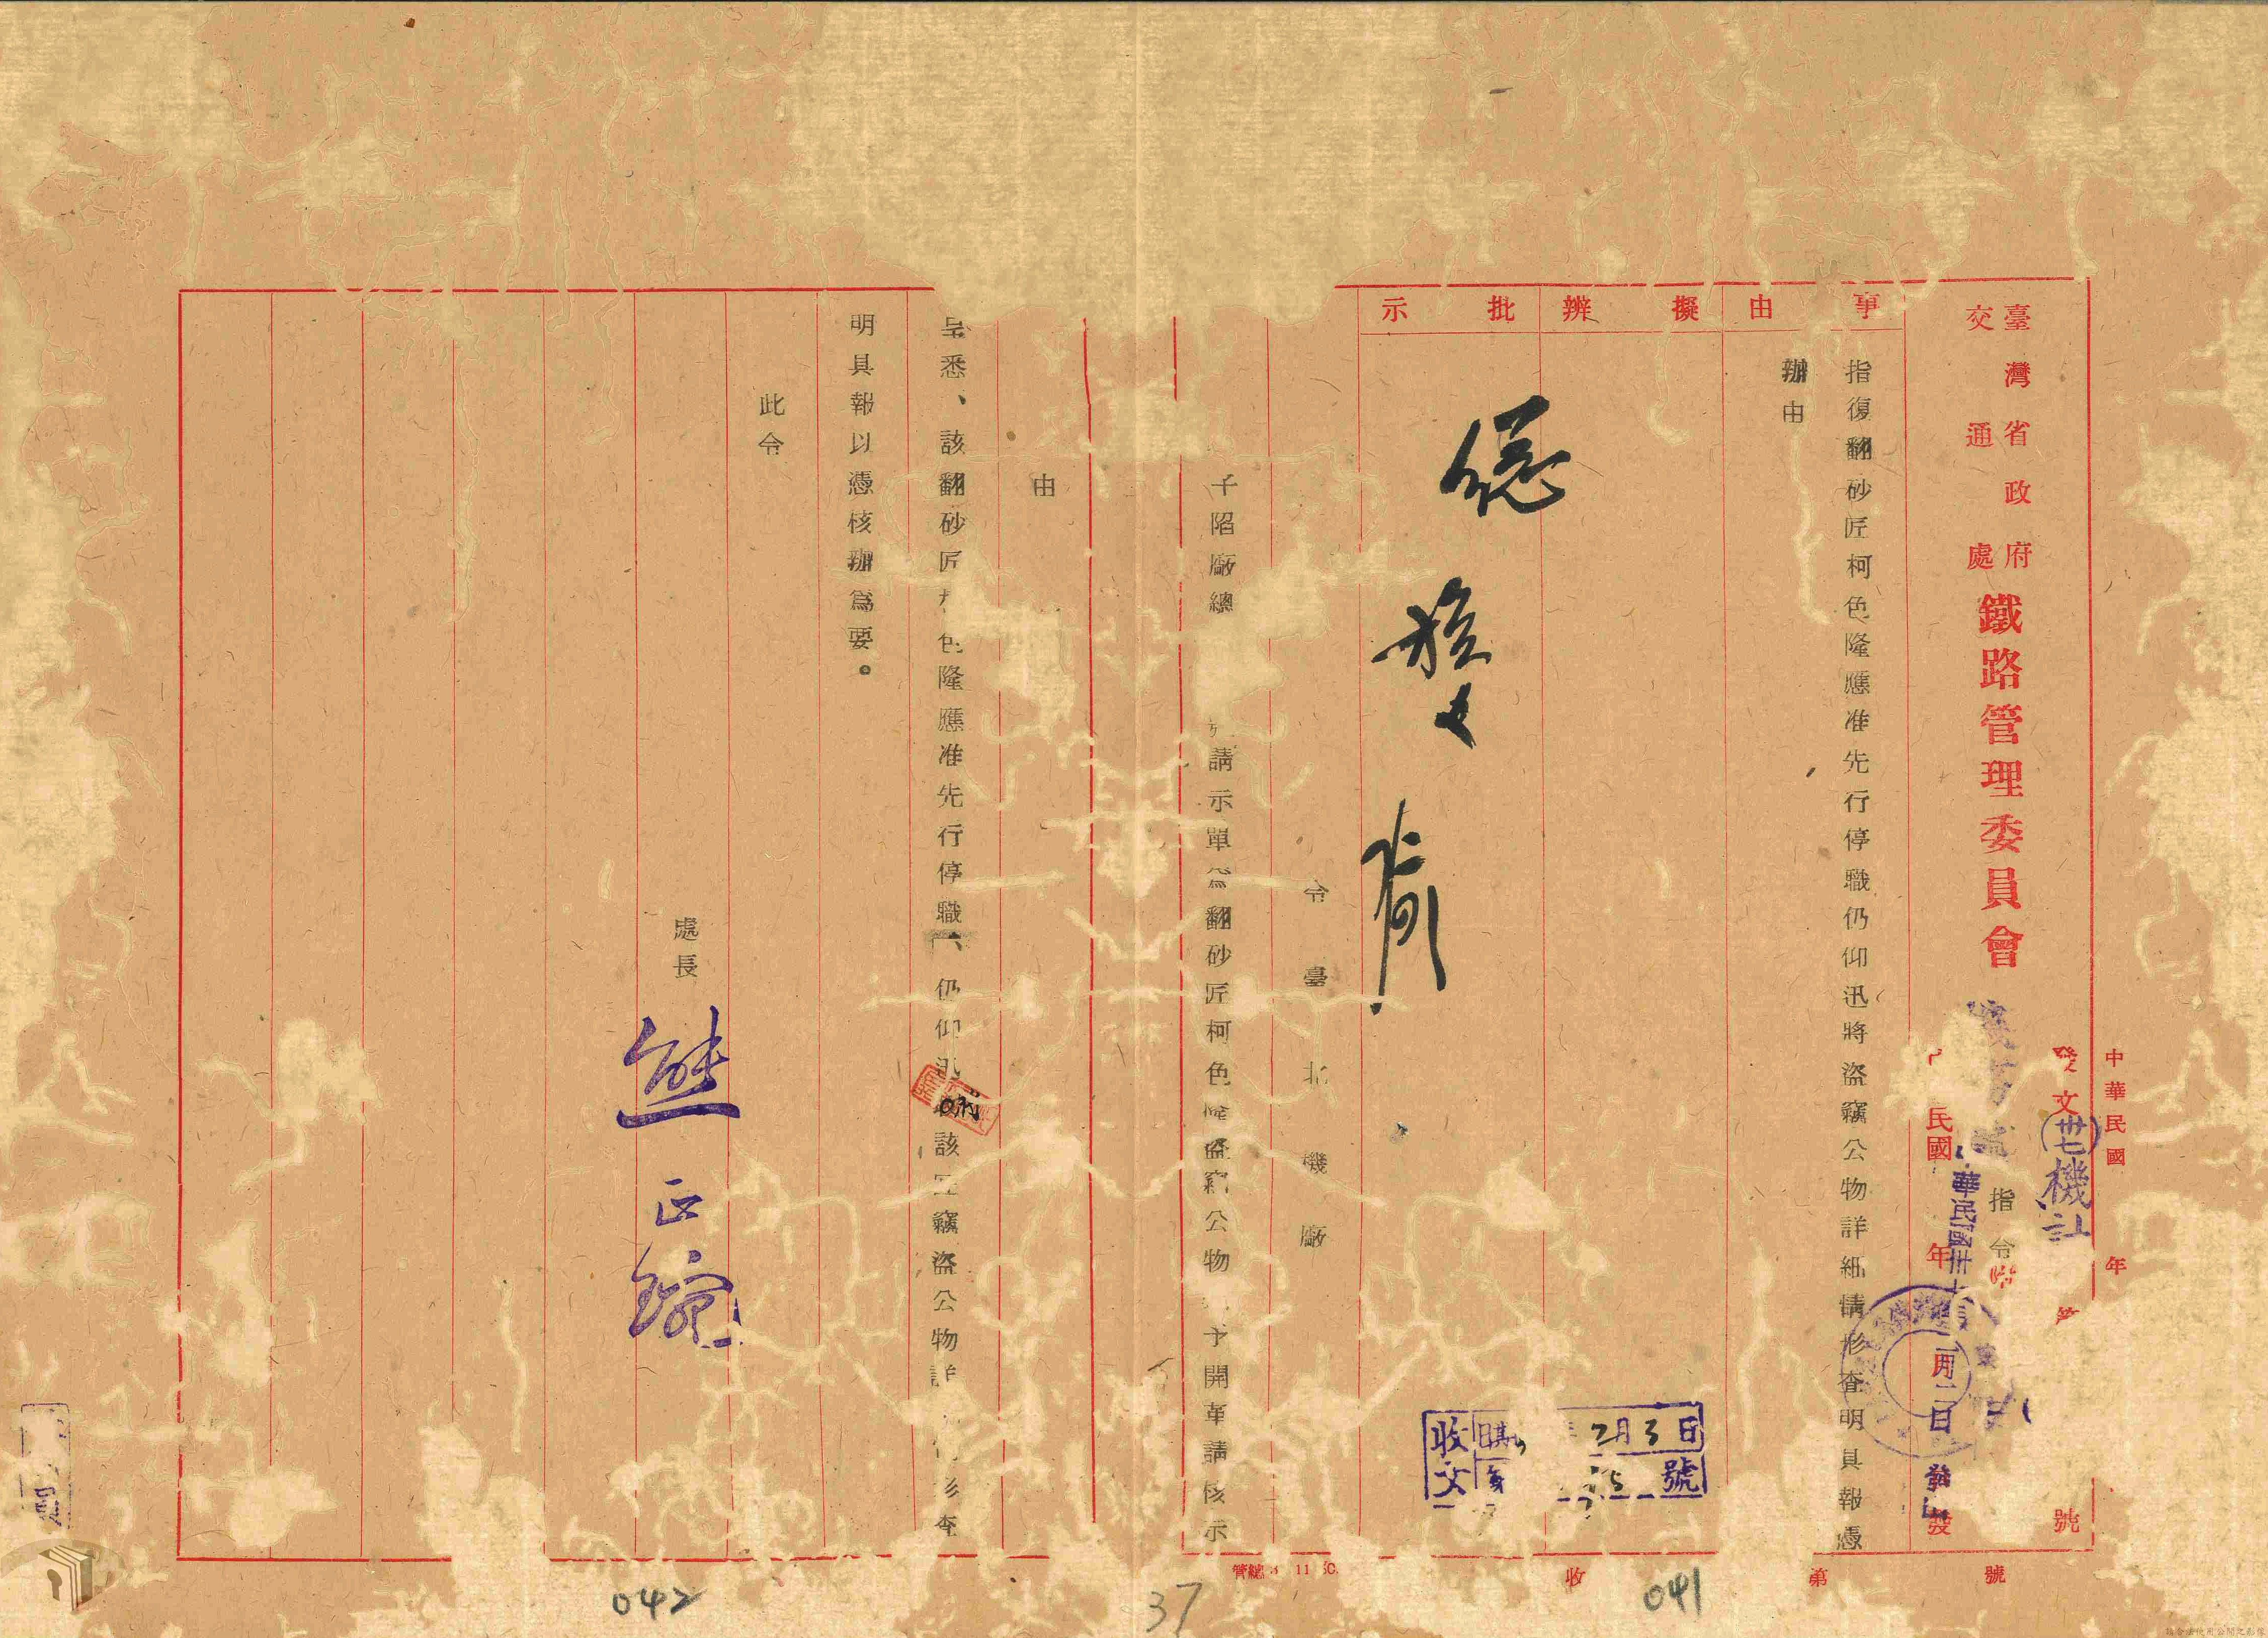 臺灣省政府
交通處
鐵路管理委員會
指令
中華民國 年
發文(卅七)機
號
民國 年 月 日 發
華民國卅七
二月二日
發出
事由
擬辦
批示
指復翻砂匠柯色隆應准先行停職仍仰迅將盜竊公物詳細情形查明具報憑
辦由
收文
日期 2月3日
號
令臺北機廠
子陷廠總 請示單為翻砂匠柯色隆盜竊公物 予開革請核示
由
呈悉、該翻砂匠 色隆應准先行停職、仍仰迅 該匠竊盜公物詳 形查
明具報以憑核辦為要。
此令
處長
熊正琬
管總 11
收 第 號
041
37
042